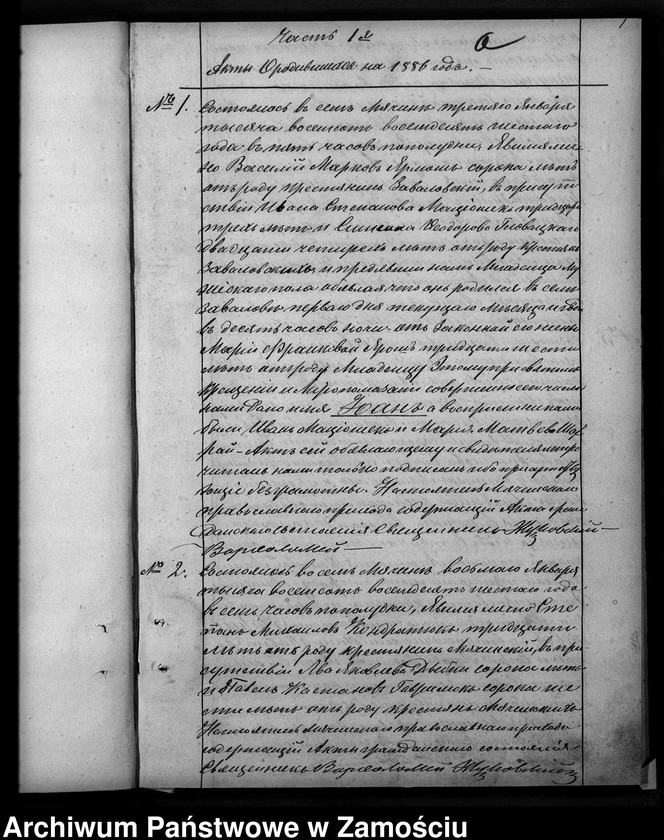 Часть 1я
АктыОродившихся на 1886 года. —
№ 1. Состоялось въ селѣ Мячинѣ третяго Января
тысяча восемсотъ восемдесятъ шестаго
года въ пять часовъ пополудни, Явился лич
но Василій Марковъ Ярмошъ сорока лѣтъ
отъ роду крестянинъ Заваловскій, въ присут
ствіи Ивана Степанова Маціошека тридцати
трехъ лѣтъ и Еодорова
двадцати четырехъ лѣтъ отъ роду крестянъ
Заваловскихъ и предъявилъ намъ Младенца Му
жескаго пола объявляя что онъ родился въ селѣ
Заваловѣ перваго дня текущаго Мѣсяца и года
въ десять часовъ ночи отъ законной его жены
Маріи Ярошъ тридцати шести
лѣтъ отъ роду Младенцу Этому при святомъ
крещеніи и Миропомазаніи совершенномъ сего числа
нами Дано имя Іоанъ а воспріемниками
были Иванъ Маціошекъ и Марія Матвѣева
Актъ сей объявляющему и свидѣтелямъ про
читанъ нами только подписанъ ибо
безграмотны. Настоятель Мячинскаго
православнаго прихода содержащій Акты граж
данскаго состоянія Священникъ Жуковскій —
Варѳоломей —
№ 2. Состоялось въ селѣ Мячинѣ Января
тысяча восемсотъ восемдесятъ шестаго года
въ семь часовъ пополудни, Явился лично Сте
панъ Михаиловъ Кондратюкъ тридцати
лѣтъ отъ роду крестянинъ Мячинскій, въ при
сутствіи Яковлева сорока лѣтъ
и Павелъ сорока ше
сти лѣтъ отъ роду крестянъ Мячинскихъ
Настоятель Мячинскаго православнаго прихода
содержащій Акты гражданскаго состоянія
Священникъ Варѳоломей Жуковскій
Archiwum Państwowe w Zamościu